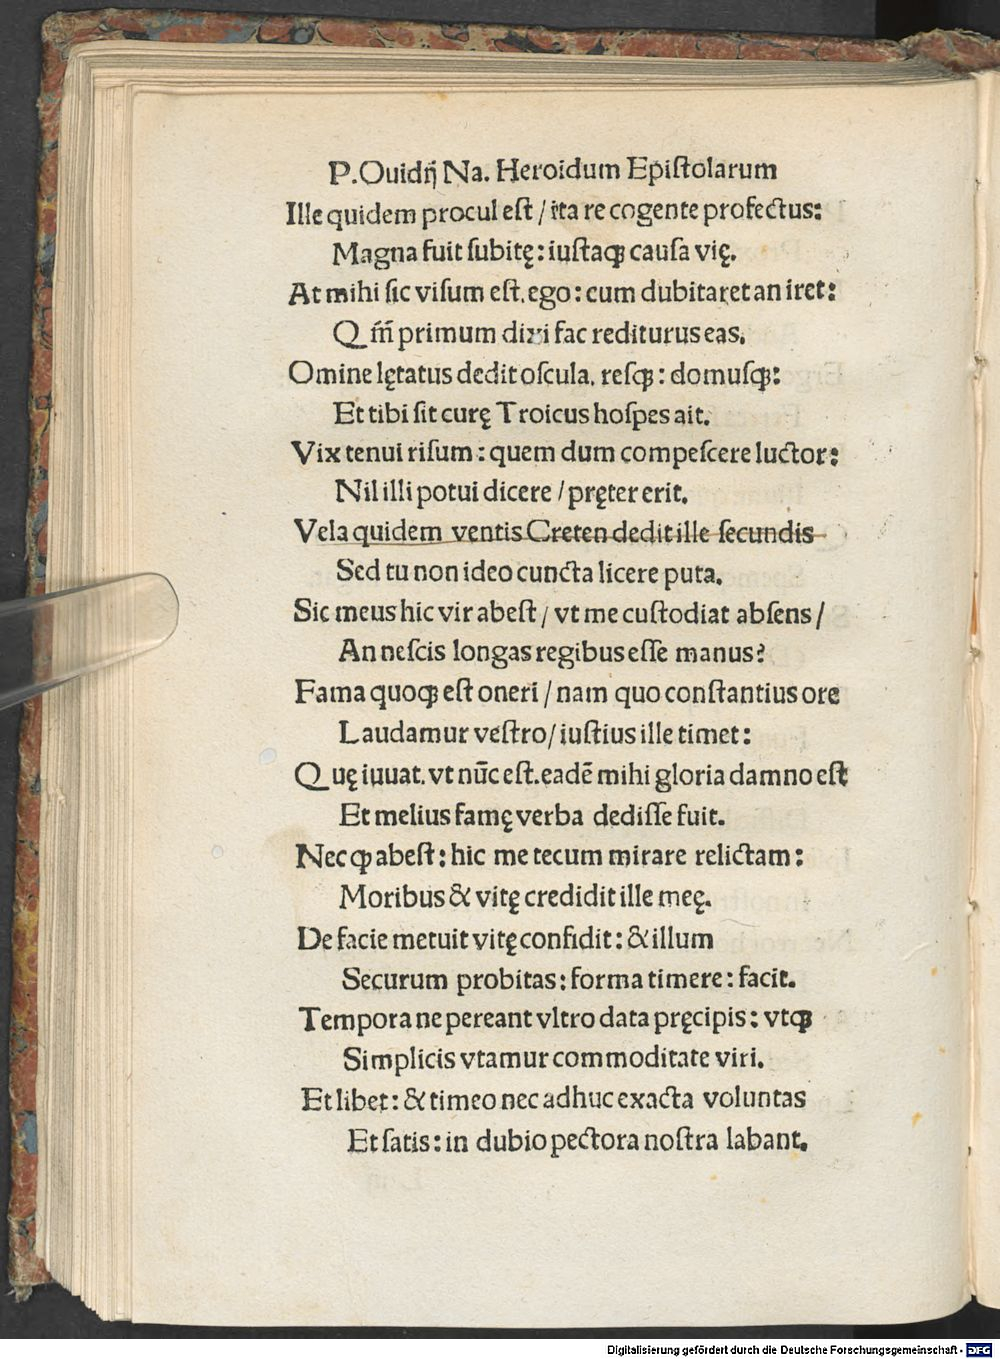 P.Ouidij Na. Heroidum Epistolarum
Ille quidem procul est / ita re cogente profectus:
Magna fuit subitę: iustaqꝫ causa vię.
At mihi sic visum est. ego: cum dubitaret an iret:
Qm̄ primum dixi fac rediturus eas.
Omine lętatus dedit oscula. resqꝫ: domusqꝫ:
Et tibi sit curę Troicus hospes ait.
Vix tenui risum: quem dum compescere luctor:
Nil illi potui dicere / pręter erit.
Vela quidem ventis Creten dedit ille secundis
Sed tu non ideo cuncta licere puta.
Sic meus hic vir abest / vt me custodiat absens /
An nescis longas regibus esse manus?
Fama quoqꝫ est oneri / nam quo constantius ore
Laudamur vestro / iustius ille timet:
Quę iuuat. vt nūc est. eadē mihi gloria damno est
Et melius famę verba dedisse fuit.
Nec qꝫ abest: hic me tecum mirare relictam:
Moribus & vitę credidit ille meę.
De facie metuit vitę confidit: & illum
Securum probitas: forma timere: facit.
Tempora ne pereant vltro data pręcipis: vtqꝫ
Simplicis vtamur commoditate viri.
Et libet: & timeo nec adhuc exacta voluntas
Et satis: in dubio pectora nostra labant.
Digitalisierung gefördert durch die Deutsche Forschungsgemeinschaft - DFG